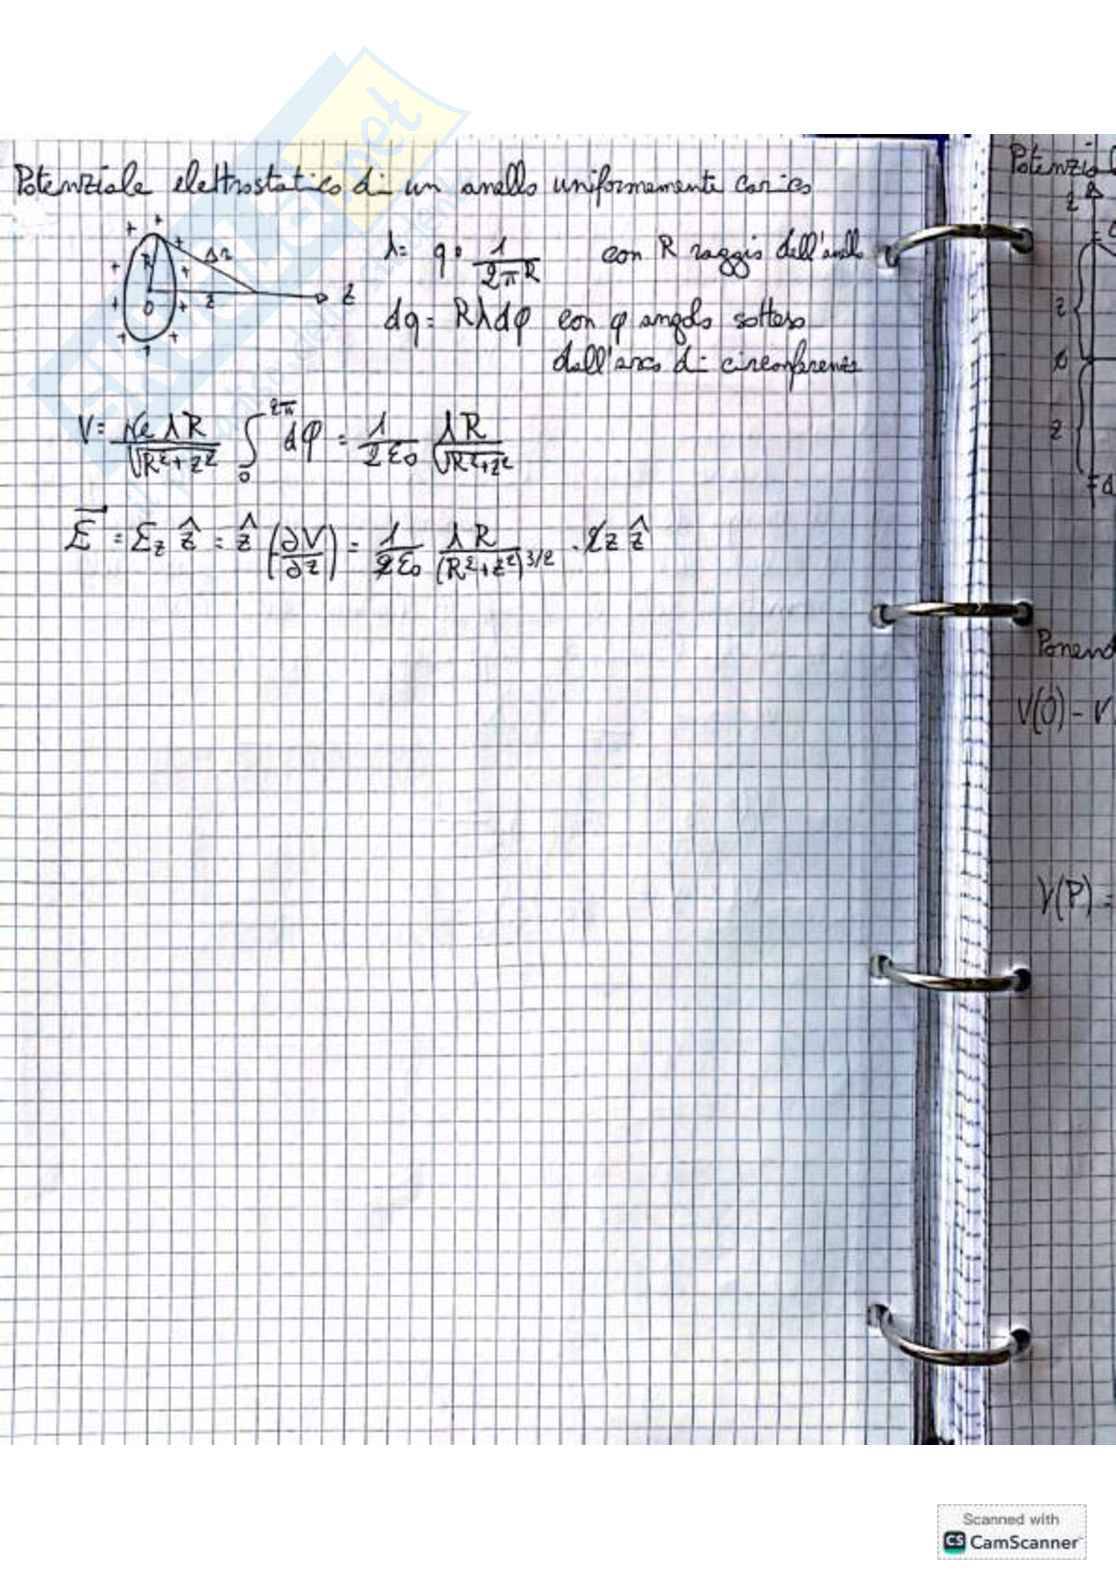 Potenziale elettrostatico di un anello uniformemente carico
λ = q · 1/(2πR) con R raggio dell'anello
dq = Rλdφ con φ angolo sotteso
dall'arco di circonferenza
R Δr z 0 z
V = (Ke λR)/√(R²+z²) ∫₀^2π dφ = 1/(2ε₀) λR/√(R²+z²)
E⃗ = Ez ẑ = ẑ (-∂V/∂z) = 1/(2ε₀) λR/(R²+z²)^3/2 · 2z ẑ
Potenzial
z
z
0
z
Ponend
V(0) - V
V(P) =
SKUOLA.net
Scanned with
CS CamScanner